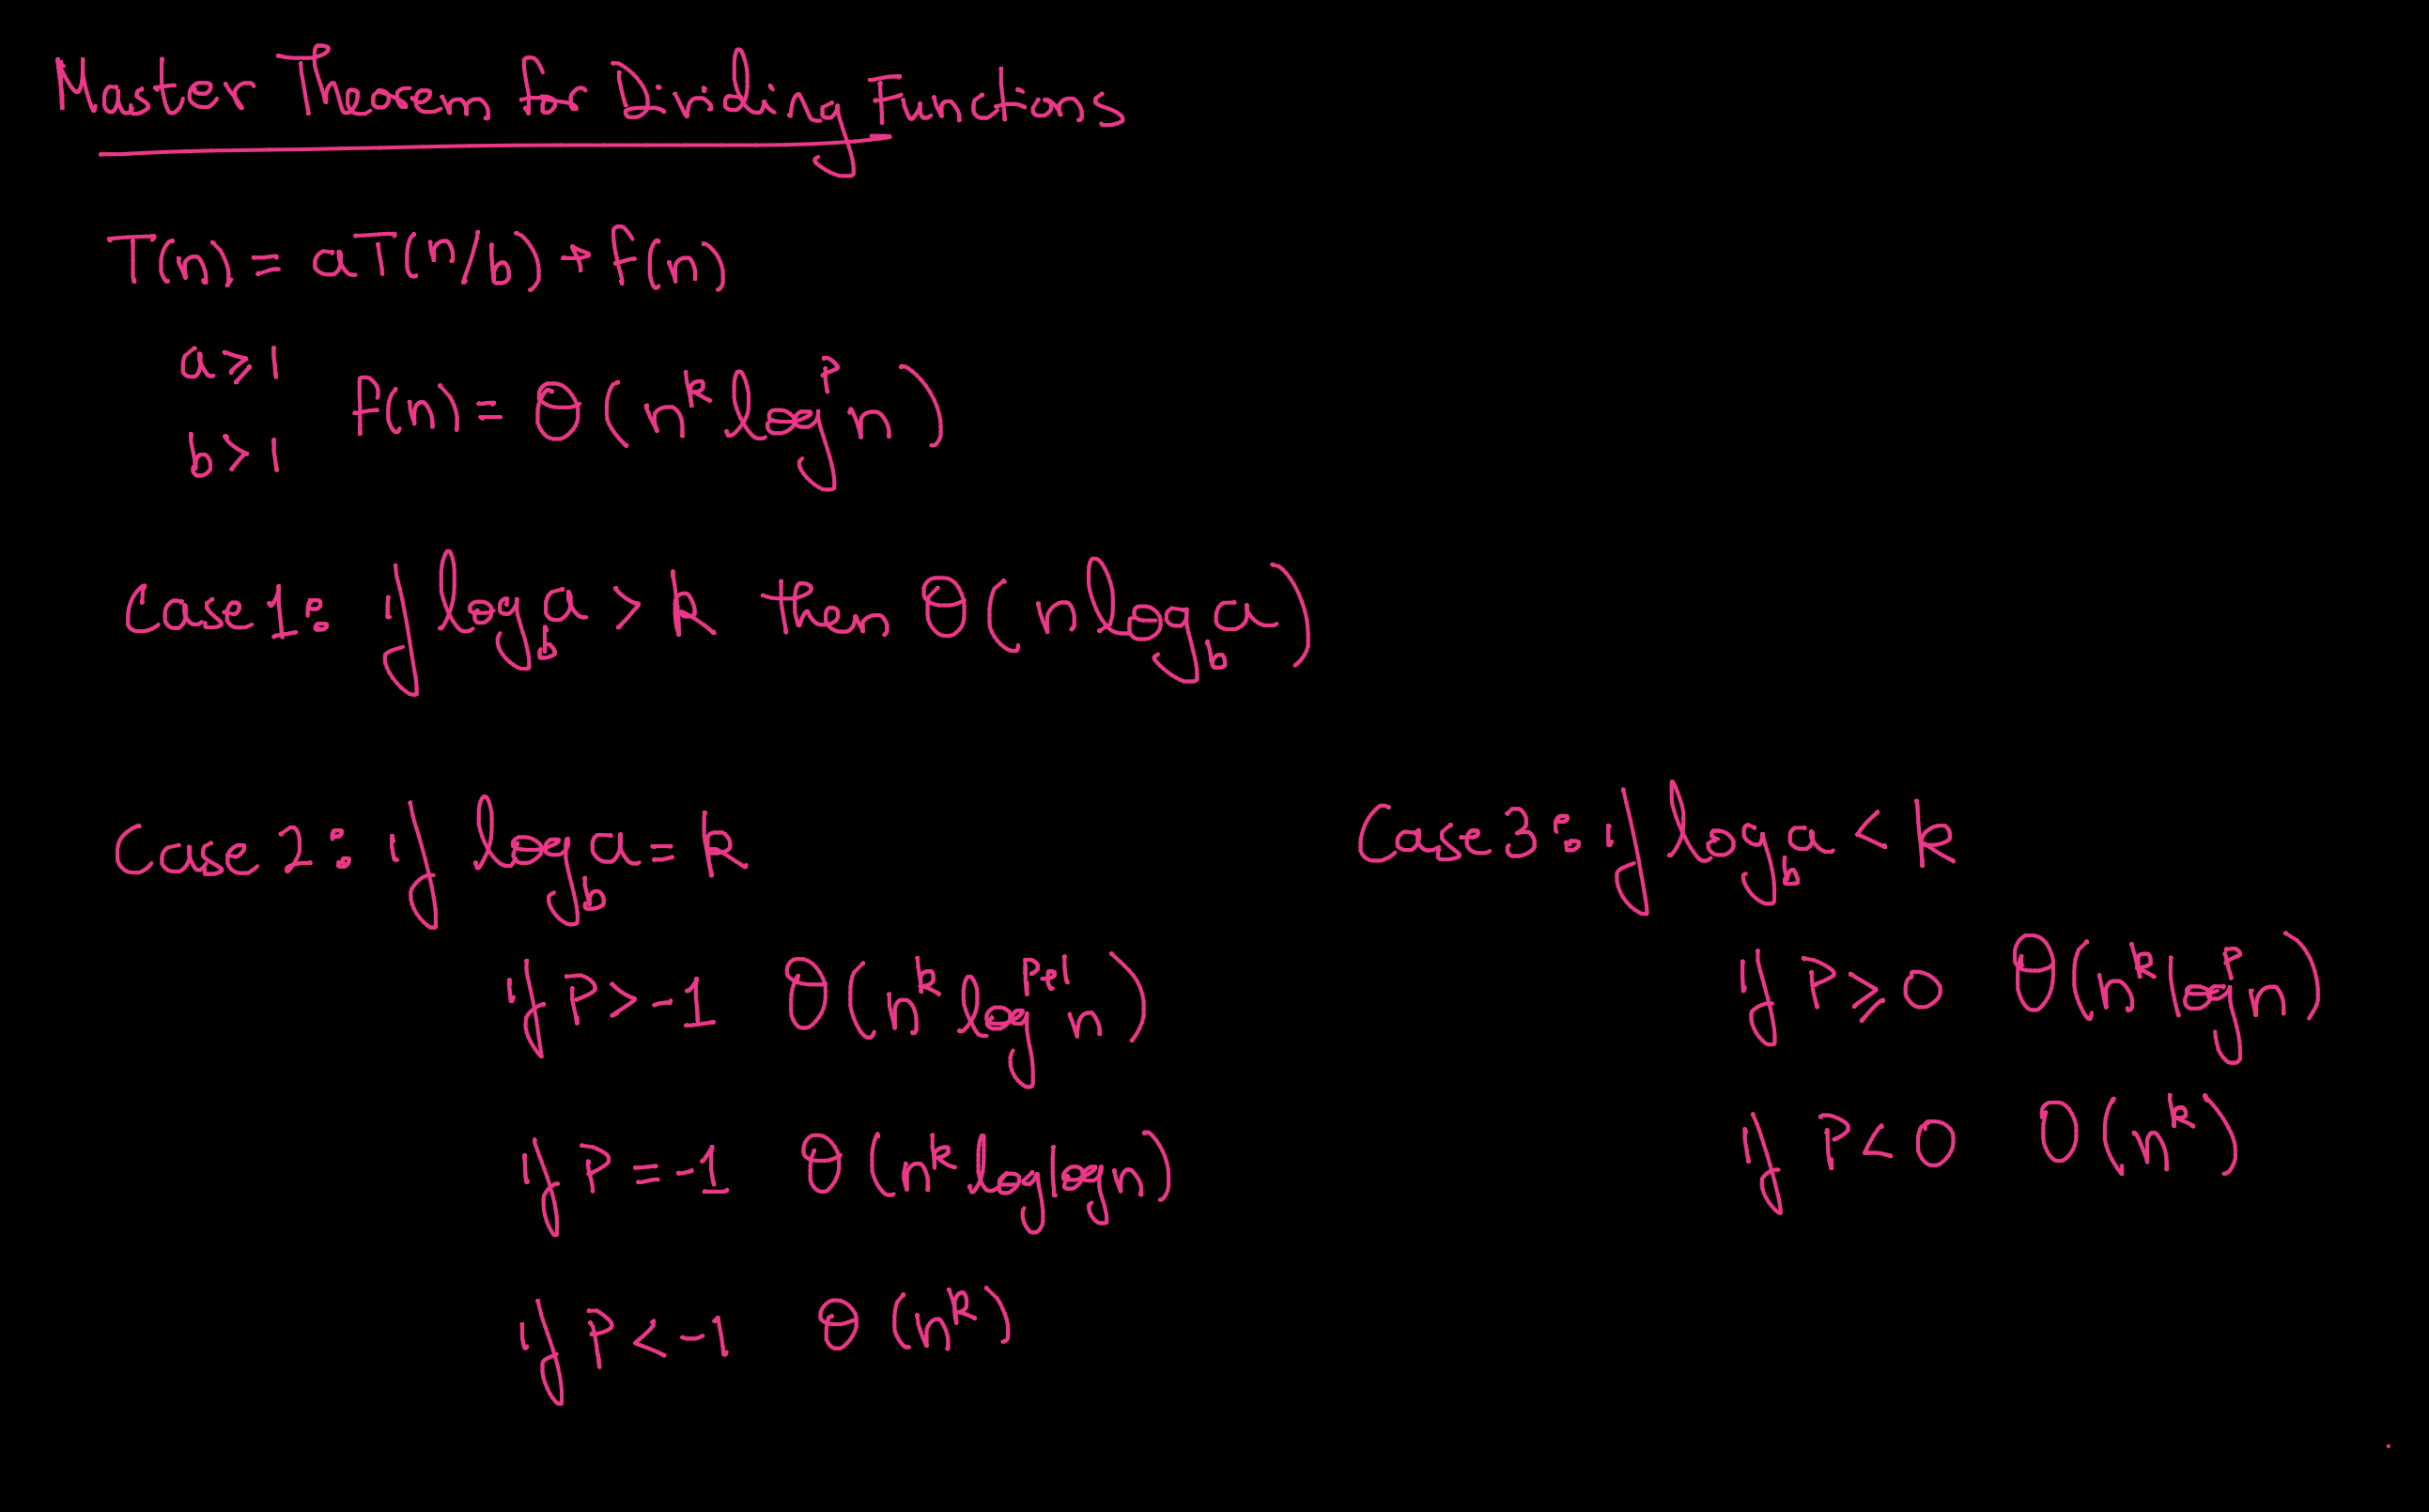 Master Theorem for Dividing Functions
T(n) = aT(n/b) + f(n)
a ⩾ 1
f(n) = Θ(n^k log^p n)
b > 1
Case 1: if log_b a > k then Θ(n log_b a)
Case 2: if log_b a = k
if P > -1 Θ(n^k log^{P+1} n)
if P = -1 Θ(n^k log log n)
if P < -1 Θ(n^k)
Case 3: if log_b a < k
if P ⩾ 0 Θ(n^k log^P n)
if P < 0 O(n^k)